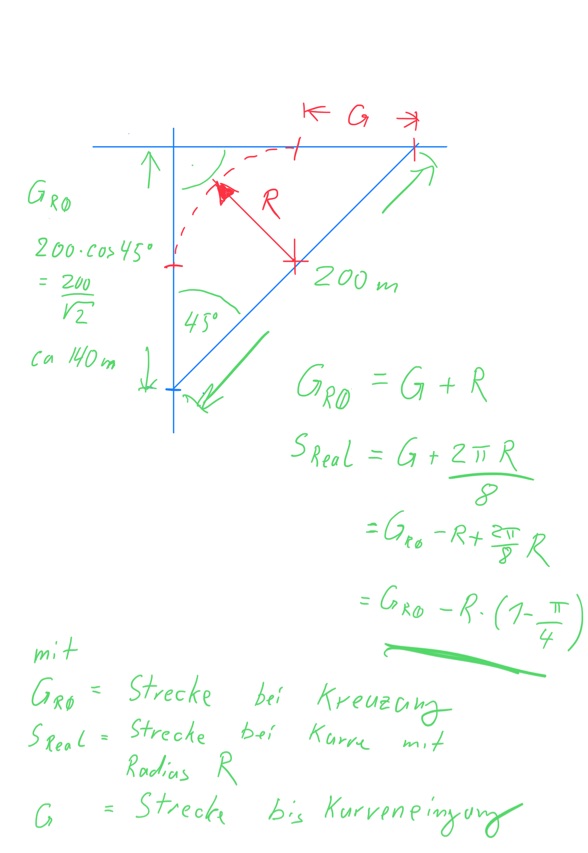 G
G_R0
R
200·cos45°
= 200/√2
200m
45°
ca 140m
G_R0 = G + R
S_Real = G + 2πR/8
= G_R0 - R + 2π/8 R
= G_R0 - R·(1-π/4)
mit
G_R0 = Strecke bei Kreuzung
S_Real = Strecke bei Kurve mit
Radius R
G = Strecke bis Kurveneingang